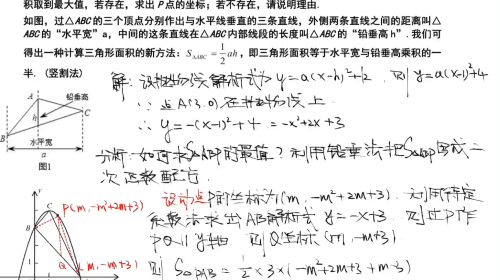 积取到最大值，若存在，求出 P 点的坐标；若不存在，请说明理由.
如图，过△ABC 的三个顶点分别作出与水平线垂直的三条直线，外侧两条直线之间的距离叫△
ABC 的“水平宽”a，中间的这条直线在△ABC 内部线段的长度叫△ABC 的“铅垂高 h”. 我们可
得出一种计算三角形面积的新方法：S△ABC = 1/2 ah，即三角形面积等于水平宽与铅垂高乘积的一
半.（竖割法）
解：设抛物线解析式为 y=a(x-h)²+k 则 y=a(x-1)²+4
∵点A(3,0)在抛物线上
∴ y=-(x-1)²+4 = -x²+2x+3
A
铅垂高
h
C
B
水平宽
a
图1
分析：如何求S△ 的最值？利用铅垂法把S△ 二
次函数配方.
设 点P的坐标为(m, -m²+2m+3). 利用待定
系数法求出AB解析式 y=-x+3. 则过P作
PQ∥y轴 则Q坐标(m, -m+3)
则 S△PAB = 1/2 × 3 × (-m²+2m+3+m-3)
y
C
P(m, -m²+2m+3)
B
1
Q(m, -m+3)